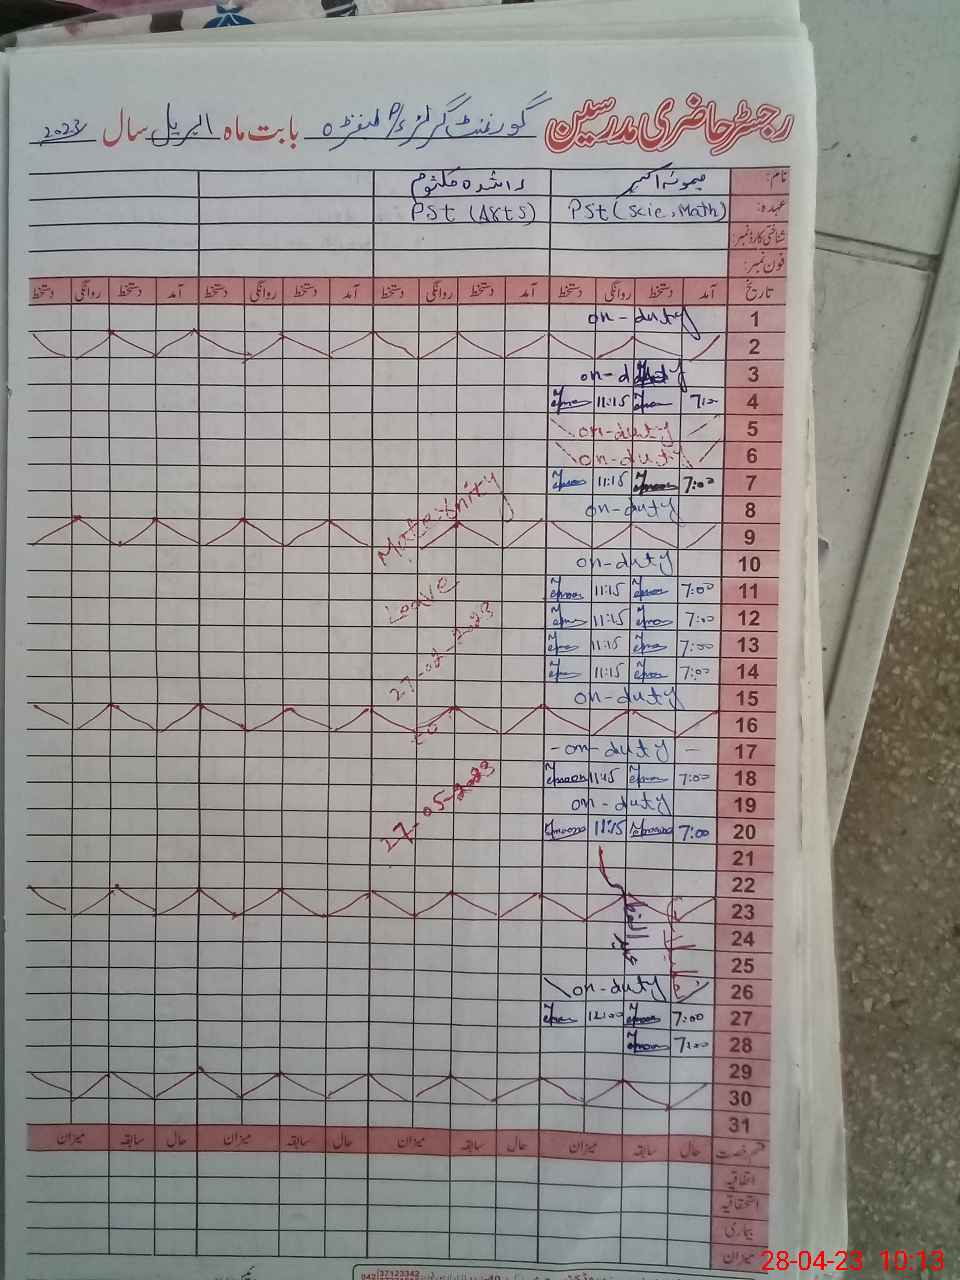 رجسٹر حاضری مدرسین گورنمنٹ گرلز بابت ماہ اپریل سال 2023
نام: میمونہ اکبر راشدہ کلثوم
عہدہ: PSt (Scie, Math) PSt (Arts)
شناختی کارڈ نمبر:
فون نمبر:
تاریخ آمد دستخط روانگی دستخط آمد دستخط روانگی دستخط آمد دستخط روانگی دستخط آمد دستخط روانگی دستخط
1 on-duty
2
3 on-duty
4 11:15
5 on-duty
6 on-duty
7 7:00 11:15
8 on-duty
9
10 on-duty
11 7:00 11:15
12 7:00 11:15
13 7:00 11:15
14 7:00 11:15
15 on-duty
16
17 - on-duty -
18 7:00
19 on-duty
20 7:00 11:15
21
22
23
24
25
26 on-duty
27 7:00 12:00
28 7:00
29
30
31
عید الفطر
Leave
27-02-2023
to
27-05-2023
قسم رخصت حال سابقہ میزان حال سابقہ میزان حال سابقہ میزان حال سابقہ میزان
اتفاقیہ
استحقاقیہ
بیماری
میزان
37123342
28-04-23 10:13